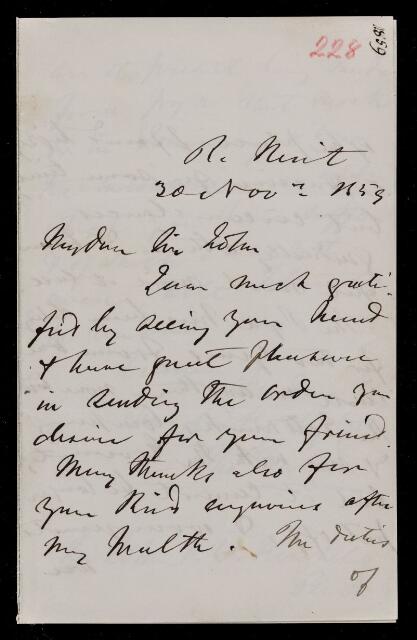 228
1859
R. Mint
30 Novr 1859
My dear Sir John
I am much grati-
fied by seeing your hand
& have great pleasure
in sending the order you
desire for your friend.
Many thanks also for
your kind inquiries after
my health. The duties
of